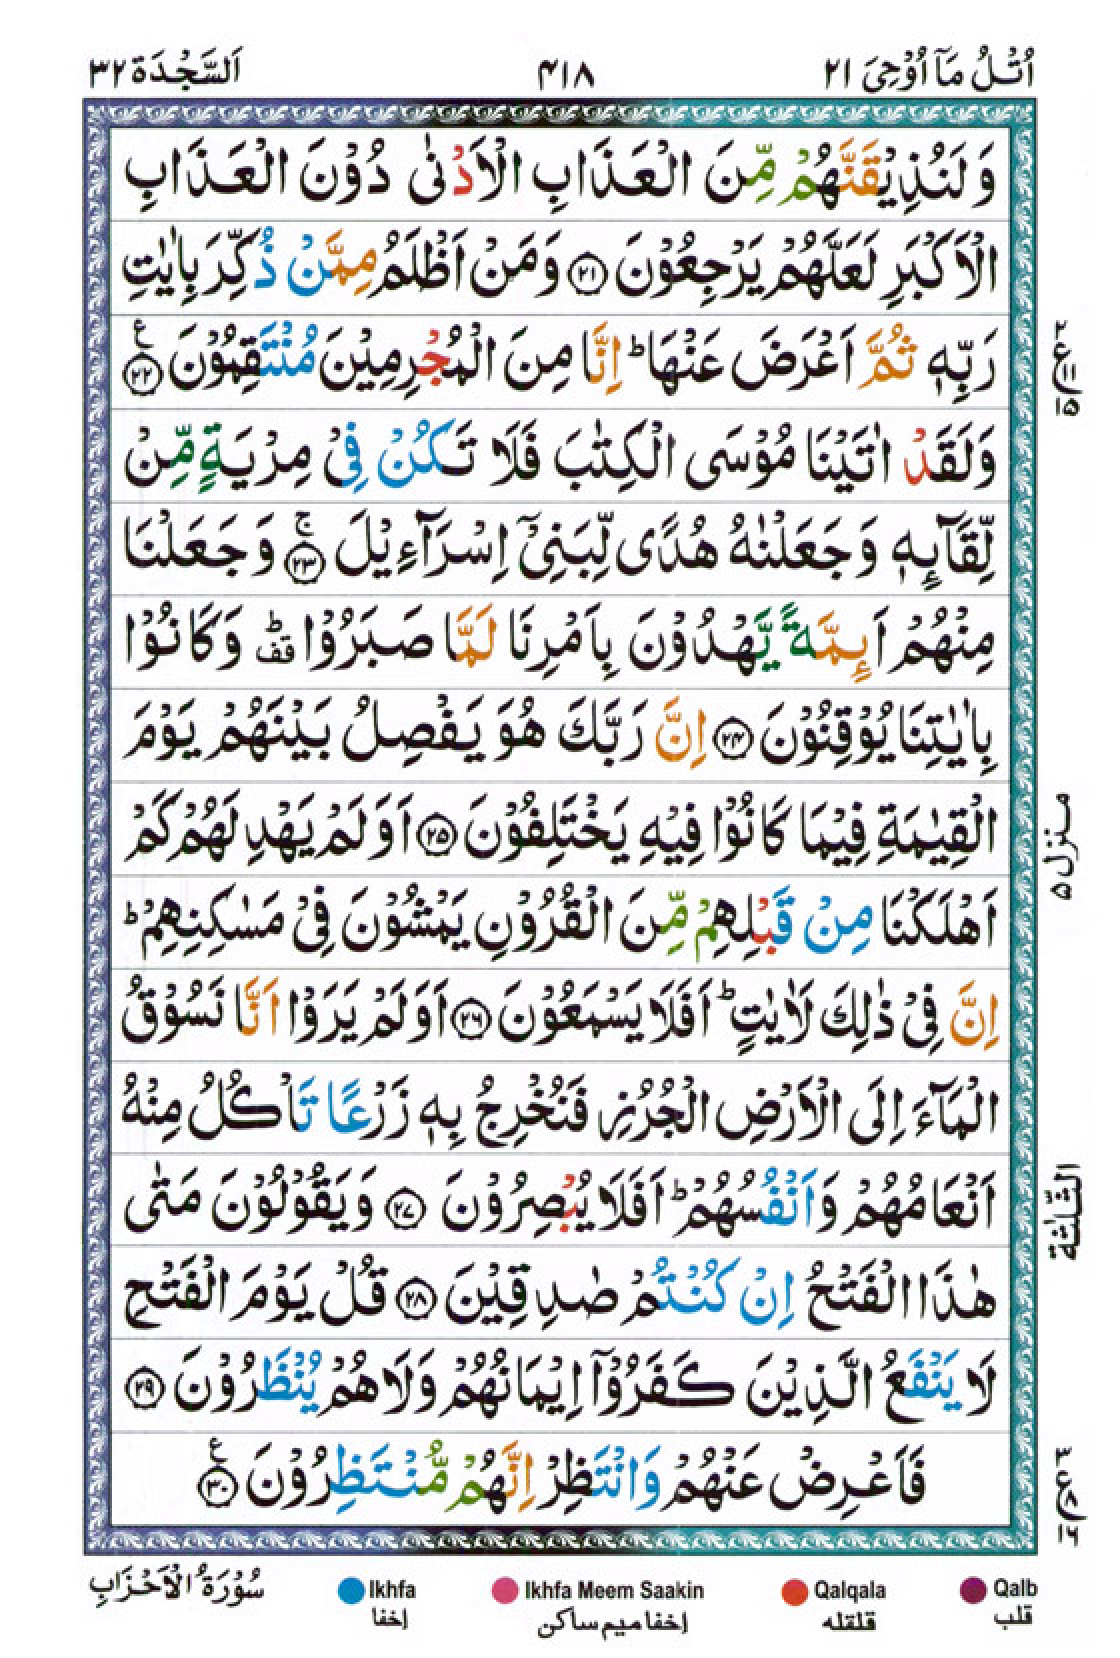 اُتْلُ مَاۤ اُوْحِیَ ۲۱
۴۱۸
اَلسَّجْدَة ۳۲
وَلَنُذِیْقَنَّهُمْ مِّنَ الْعَذَابِ الْاَدْنٰی دُوْنَ الْعَذَابِ
الْاَكْبَرِ لَعَلَّهُمْ یَرْجِعُوْنَ ﴿۲۱﴾ وَمَنْ اَظْلَمُ مِمَّنْ ذُكِّرَ بِاٰیٰتِ
رَبِّهٖ ثُمَّ اَعْرَضَ عَنْهَا ؕ اِنَّا مِنَ الْمُجْرِمِیْنَ مُنْتَقِمُوْنَ ﴿۲۲﴾ ع
وَلَقَدْ اٰتَیْنَا مُوْسَی الْكِتٰبَ فَلَا تَكُنْ فِیْ مِرْیَةٍ مِّنْ
لِّقَآىِٕهٖ وَجَعَلْنٰهُ هُدًی لِّبَنِیْۤ اِسْرَآءِیْلَ ﴿۲۳﴾ۚ وَجَعَلْنَا
مِنْهُمْ اَىِٕمَّةً یَّهْدُوْنَ بِاَمْرِنَا لَمَّا صَبَرُوْا ؕ۫ وَكَانُوْا
بِاٰیٰتِنَا یُوْقِنُوْنَ ﴿۲۴﴾ اِنَّ رَبَّكَ هُوَ یَفْصِلُ بَیْنَهُمْ یَوْمَ
الْقِیٰمَةِ فِیْمَا كَانُوْا فِیْهِ یَخْتَلِفُوْنَ ﴿۲۵﴾ اَوَلَمْ یَهْدِ لَهُمْ كَمْ
اَهْلَكْنَا مِنْ قَبْلِهِمْ مِّنَ الْقُرُوْنِ یَمْشُوْنَ فِیْ مَسٰكِنِهِمْ ؕ
اِنَّ فِیْ ذٰلِكَ لَاٰیٰتٍ ؕ اَفَلَا یَسْمَعُوْنَ ﴿۲۶﴾ اَوَلَمْ یَرَوْا اَنَّا نَسُوْقُ
الْمَآءَ اِلَی الْاَرْضِ الْجُرُزِ فَنُخْرِجُ بِهٖ زَرْعًا تَاْكُلُ مِنْهُ
اَنْعَامُهُمْ وَاَنْفُسُهُمْ ؕ اَفَلَا یُبْصِرُوْنَ ﴿۲۷﴾ وَیَقُوْلُوْنَ مَتٰی
هٰذَا الْفَتْحُ اِنْ كُنْتُمْ صٰدِقِیْنَ ﴿۲۸﴾ قُلْ یَوْمَ الْفَتْحِ
لَا یَنْفَعُ الَّذِیْنَ كَفَرُوْۤا اِیْمَانُهُمْ وَلَا هُمْ یُنْظَرُوْنَ ﴿۲۹﴾
فَاَعْرِضْ عَنْهُمْ وَانْتَظِرْ اِنَّهُمْ مُّنْتَظِرُوْنَ ﴿۳۰﴾ ع
۲
ع
۱۵
منزل ۵
الثلٰثة
۳
ع ۸
۱۶
Qalb
قلب
Qalqala
قلقله
Ikhfa Meem Saakin
إخفا میم ساکن
Ikhfa
إخفا
سُوْرَةُ الْاَحْزَابِ